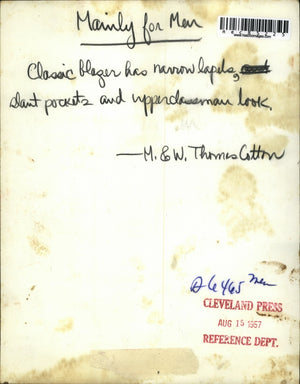 Mainly for Men
Classic blazer has narrow lapels,
slant pockets and upperclassman look.
—M. & W. Thomas Cotton
Men
CLEVELAND PRESS
AUG 15 1957
REFERENCE DEPT.